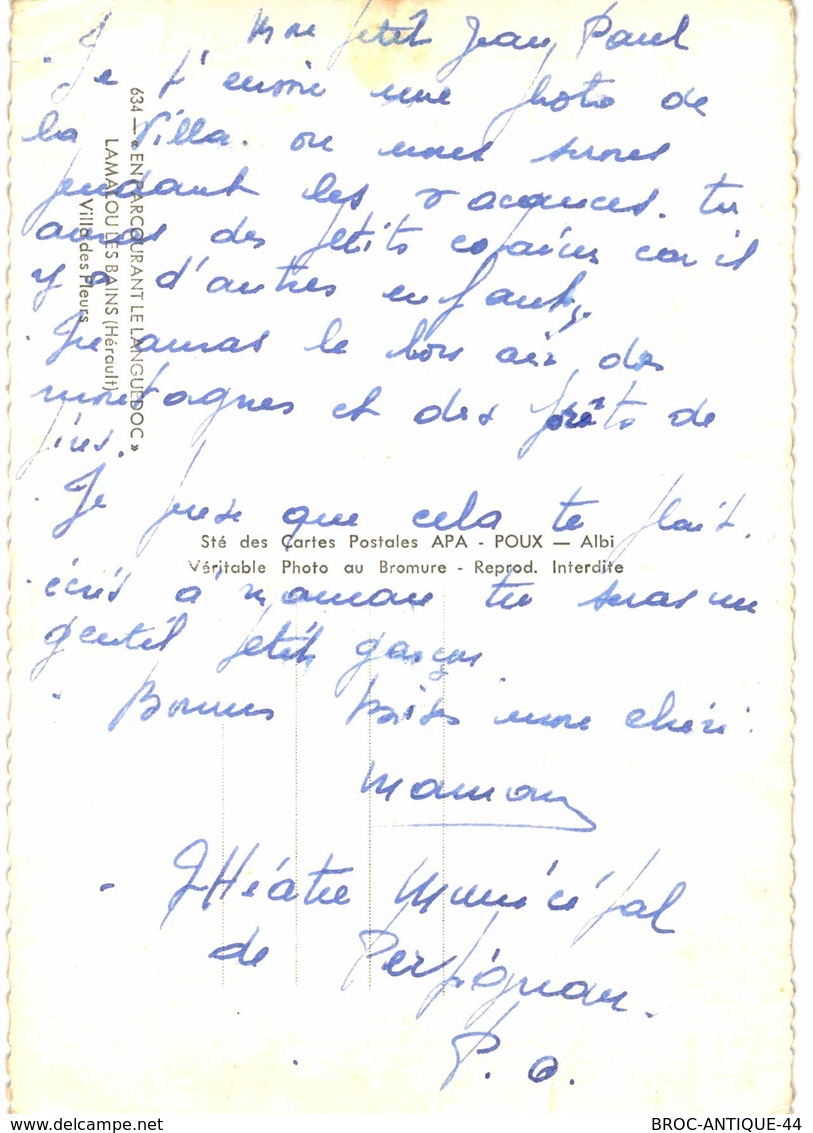 Mon petit Jean Paul
Je t'envoie une photo de
la Villa. ou nous serons
pendant les vacances. tu
auras des petits copains car il
y a d'autres enfants.
Tu auras le bon air des
montagnes et des forêts de
pins.
Je pense que cela te plait.
écris à maman tu seras un
gentil petit garçon
Bonnes bises mon chéri.
Maman
THéatre Municipal
de Perpignan.
P. O.
634 — « EN PARCOURANT LE LANGUEDOC »
LAMALOU LES BAINS (Hérault)
Villa des Fleurs
Sté des Cartes Postales APA - POUX — Albi
Véritable Photo au Bromure - Reprod. Interdite
BROC-ANTIQUE-44